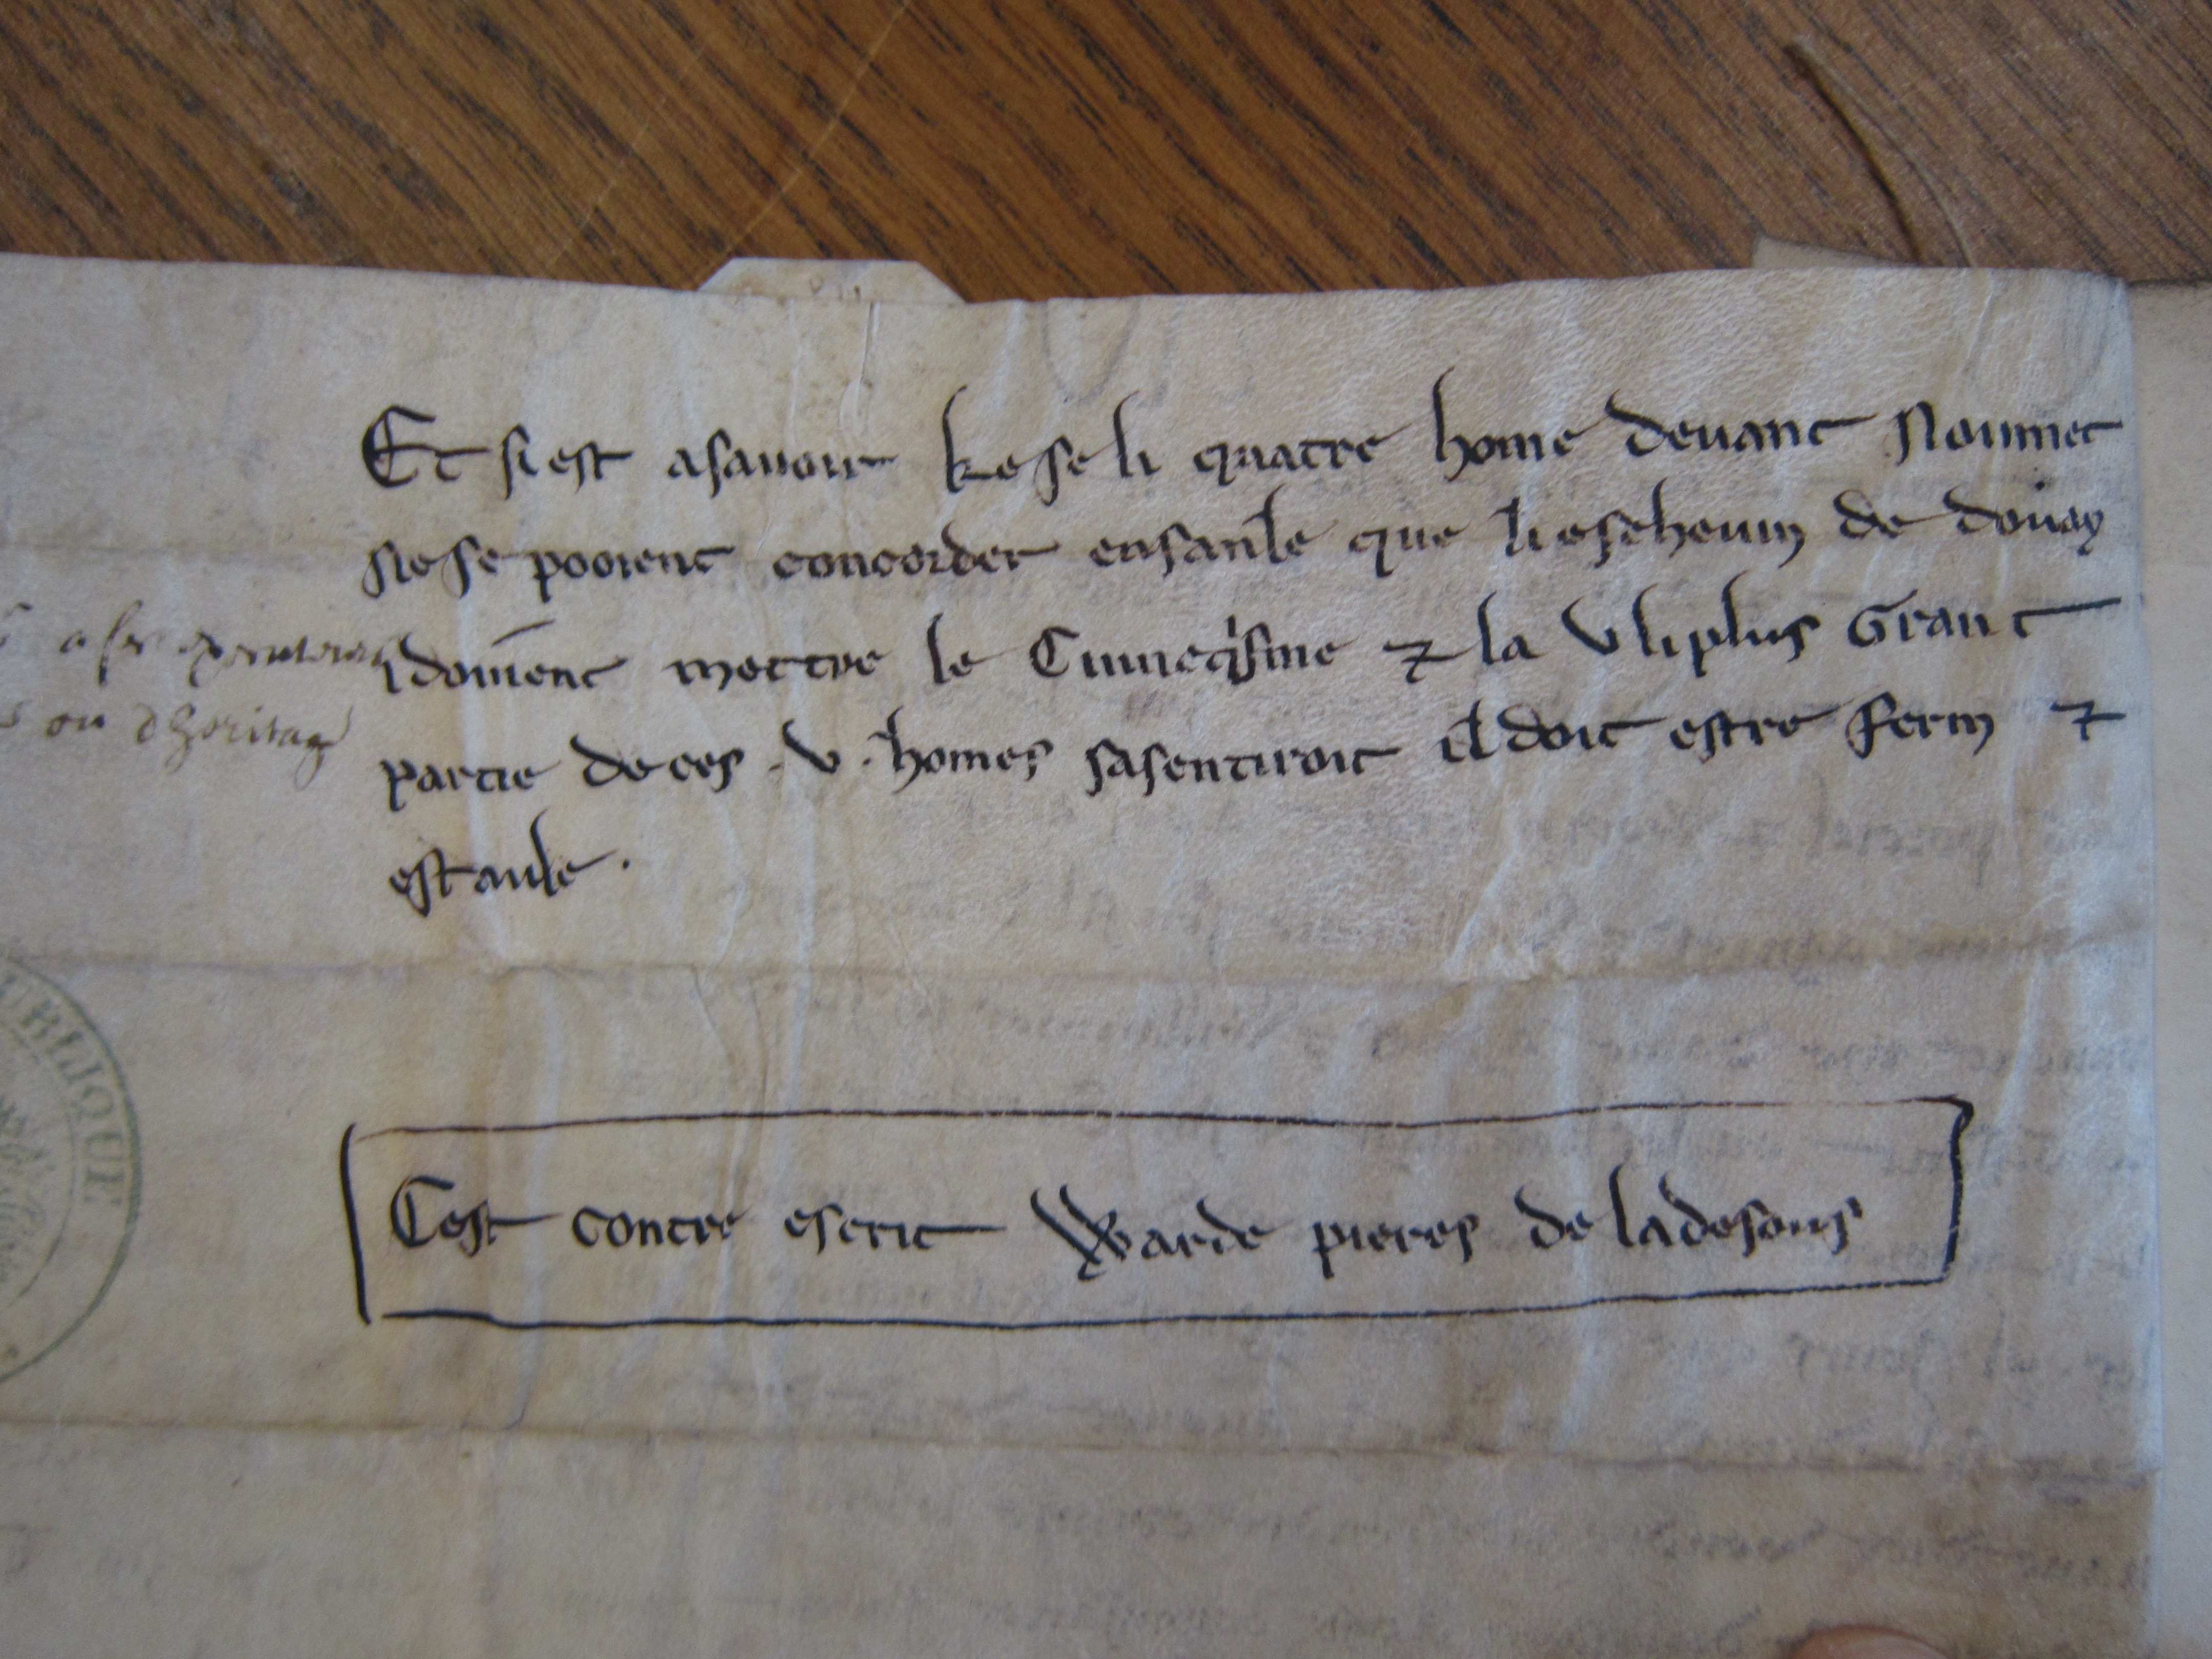 Et si est asauoir ke se li quatre home deuant noumet
ne se pooient concorder ensanle que li escheuin de douay
i doiuent mettre le Ciunc'sme ⁊ la v li plus Grant
partie de ces .v. homes sasentiroit il doit estre ferm ⁊
estaule .
ou dheritag
C est contre escrit Warde pieres de ladesous
BLIQUE